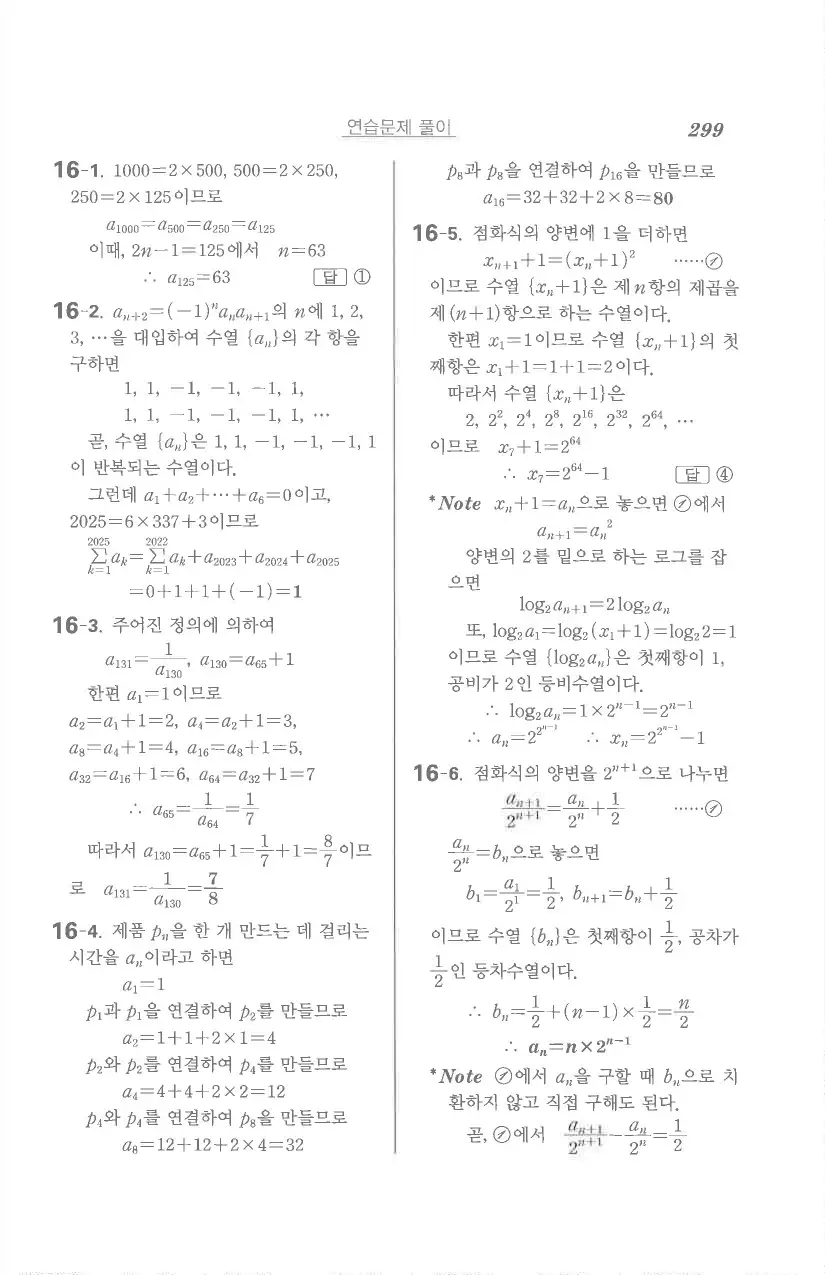 연습문제 풀이
299
16-1. 1000=2×500, 500=2×250,
250=2×125이므로
a₁₀₀₀=a₅₀₀=a₂₅₀=a₁₂₅
이때, 2n-1=125에서 n=63
∴ a₁₂₅=63 답 ①
16-2. aₙ₊₂=(-1)ⁿaₙaₙ₊₁의 n에 1, 2,
3, ⋯을 대입하여 수열 {aₙ}의 각 항을
구하면
1, 1, -1, -1, -1, 1,
1, 1, -1, -1, -1, 1, ⋯
곧, 수열 {aₙ}은 1, 1, -1, -1, -1, 1
이 반복되는 수열이다.
그런데 a₁+a₂+⋯+a₆=0이고,
2025=6×337+3이므로
∑_{k=1}^{2025} aₖ=∑_{k=1}^{2022} aₖ+a₂₀₂₃+a₂₀₂₄+a₂₀₂₅
=0+1+1+(-1)=1
16-3. 주어진 정의에 의하여
a₁₃₁=1/a₁₃₀, a₁₃₀=a₆₅+1
한편 a₁=1이므로
a₂=a₁+1=2, a₄=a₂+1=3,
a₈=a₄+1=4, a₁₆=a₈+1=5,
a₃₂=a₁₆+1=6, a₆₄=a₃₂+1=7
∴ a₆₅=1/a₆₄=1/7
따라서 a₁₃₀=a₆₅+1=1/7+1=8/7이므
로 a₁₃₁=1/a₁₃₀=7/8
16-4. 제품 pₙ을 한 개 만드는 데 걸리는
시간을 aₙ이라고 하면
a₁=1
p₁과 p₁을 연결하여 p₂를 만들므로
a₂=1+1+2×1=4
p₂와 p₂를 연결하여 p₄를 만들므로
a₄=4+4+2×2=12
p₄와 p₄를 연결하여 p₈을 만들므로
a₈=12+12+2×4=32
p₈과 p₈을 연결하여 p₁₆을 만들므로
a₁₆=32+32+2×8=80
16-5. 점화식의 양변에 1을 더하면
xₙ₊₁+1=(xₙ+1)² ⋯⋯㉠
이므로 수열 {xₙ+1}은 제n항의 제곱을
제(n+1)항으로 하는 수열이다.
한편 x₁=1이므로 수열 {xₙ+1}의 첫
째항은 x₁+1=1+1=2이다.
따라서 수열 {xₙ+1}은
2, 2², 2⁴, 2⁸, 2¹⁶, 2³², 2⁶⁴, ⋯
이므로 x₇+1=2⁶⁴
∴ x₇=2⁶⁴-1 답 ④
*Note xₙ+1=aₙ으로 놓으면 ㉠에서
aₙ₊₁=aₙ²
양변의 2를 밑으로 하는 로그를 잡
으면
log₂aₙ₊₁=2log₂aₙ
또, log₂a₁=log₂(x₁+1)=log₂2=1
이므로 수열 {log₂aₙ}은 첫째항이 1,
공비가 2인 등비수열이다.
∴ log₂aₙ=1×2ⁿ⁻¹=2ⁿ⁻¹
∴ aₙ=2^{2^{n-1}} ∴ xₙ=2^{2^{n-1}}-1
16-6. 점화식의 양변을 2ⁿ⁺¹으로 나누면
aₙ₊₁/2ⁿ⁺¹=aₙ/2ⁿ+1/2 ⋯⋯㉠
aₙ/2ⁿ=bₙ으로 놓으면
b₁=a₁/2¹=1/2, bₙ₊₁=bₙ+1/2
이므로 수열 {bₙ}은 첫째항이 1/2, 공차가
1/2인 등차수열이다.
∴ bₙ=1/2+(n-1)×1/2=n/2
∴ aₙ=n×2ⁿ⁻¹
*Note ㉠에서 aₙ을 구할 때 bₙ으로 치
환하지 않고 직접 구해도 된다.
곧, ㉠에서 aₙ₊₁/2ⁿ⁺¹-aₙ/2ⁿ=1/2